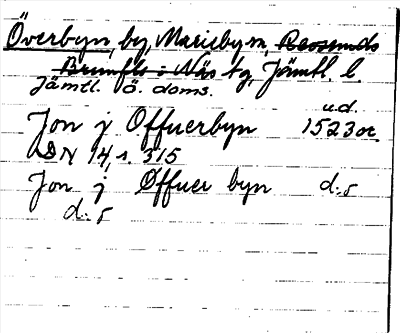 Överbyn, by, Marieby sn, Revsunds
Brunflo o. Näs tg, Jämtl. l.
Jämtl. ö. doms.
u.d.
Jon j Offuerbyn 1523 oc
DN 14, s. 315
Jon j Offuer byn d:o
d:o